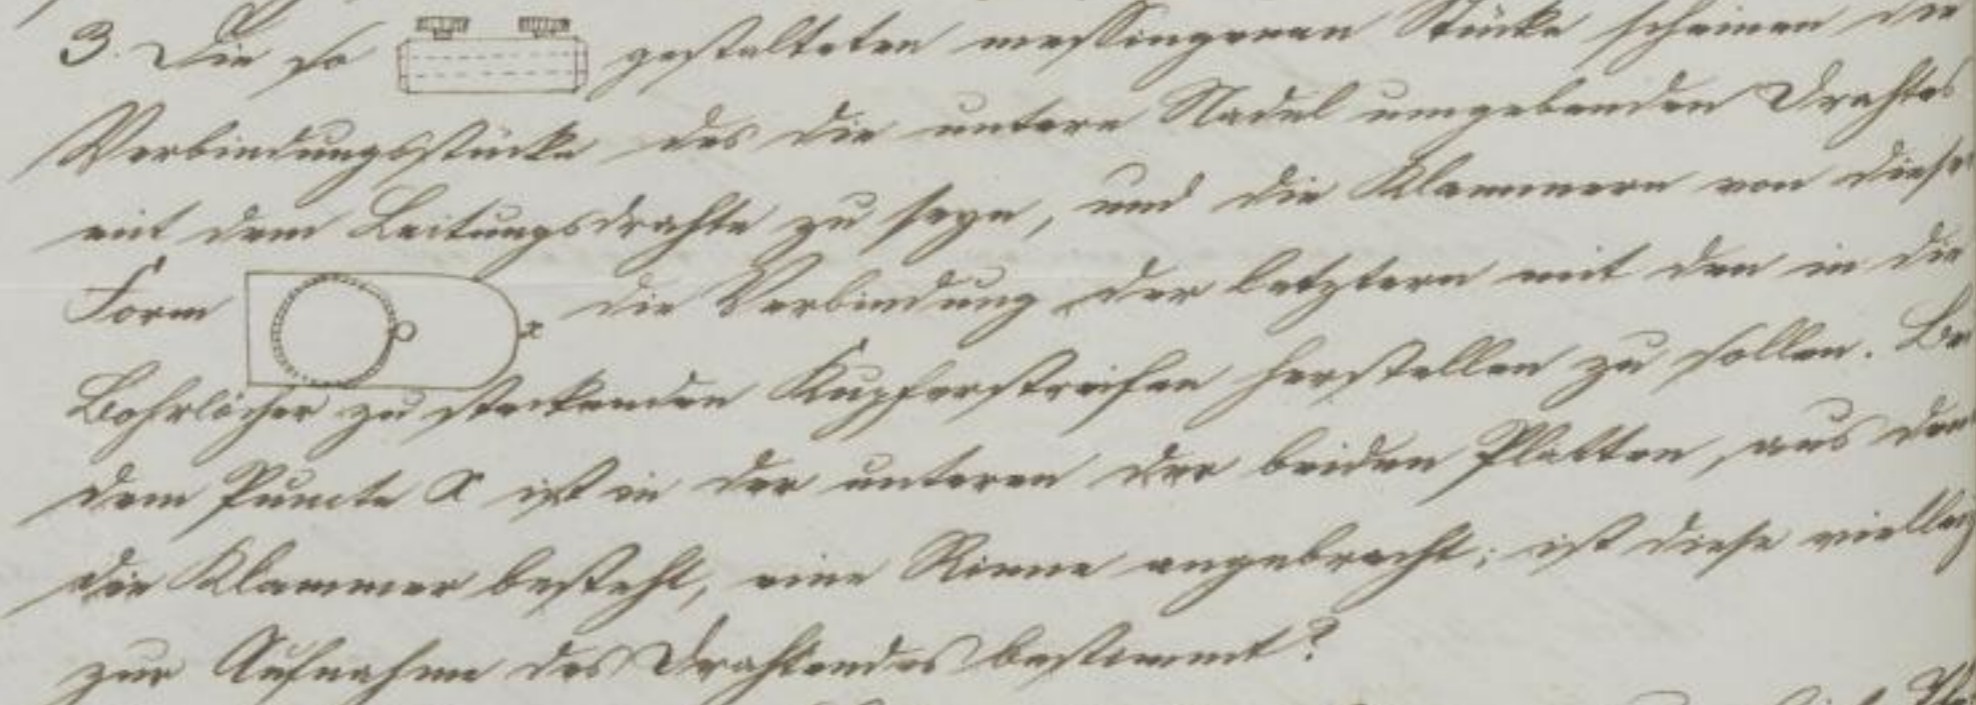 3. Die so gestalteten messingenen Stücke scheinen die
Verbindungsstücke des die untere Nadel umgebenden Drahtes
mit dem Leitungsdrahte zu seyn, und die Klammern von dieser
Form x die Verbindung der letztern mit den in die
Bohrlöcher zu steckenden Kupferstreifen herstellen zu sollen. Bei
dem Puncte x ist in der unteren der beiden Platten, aus denen
die Klammer besteht, eine Rinne angebracht; ist diese vielleicht
zur Aufnahme des Drahtendes bestimmt?